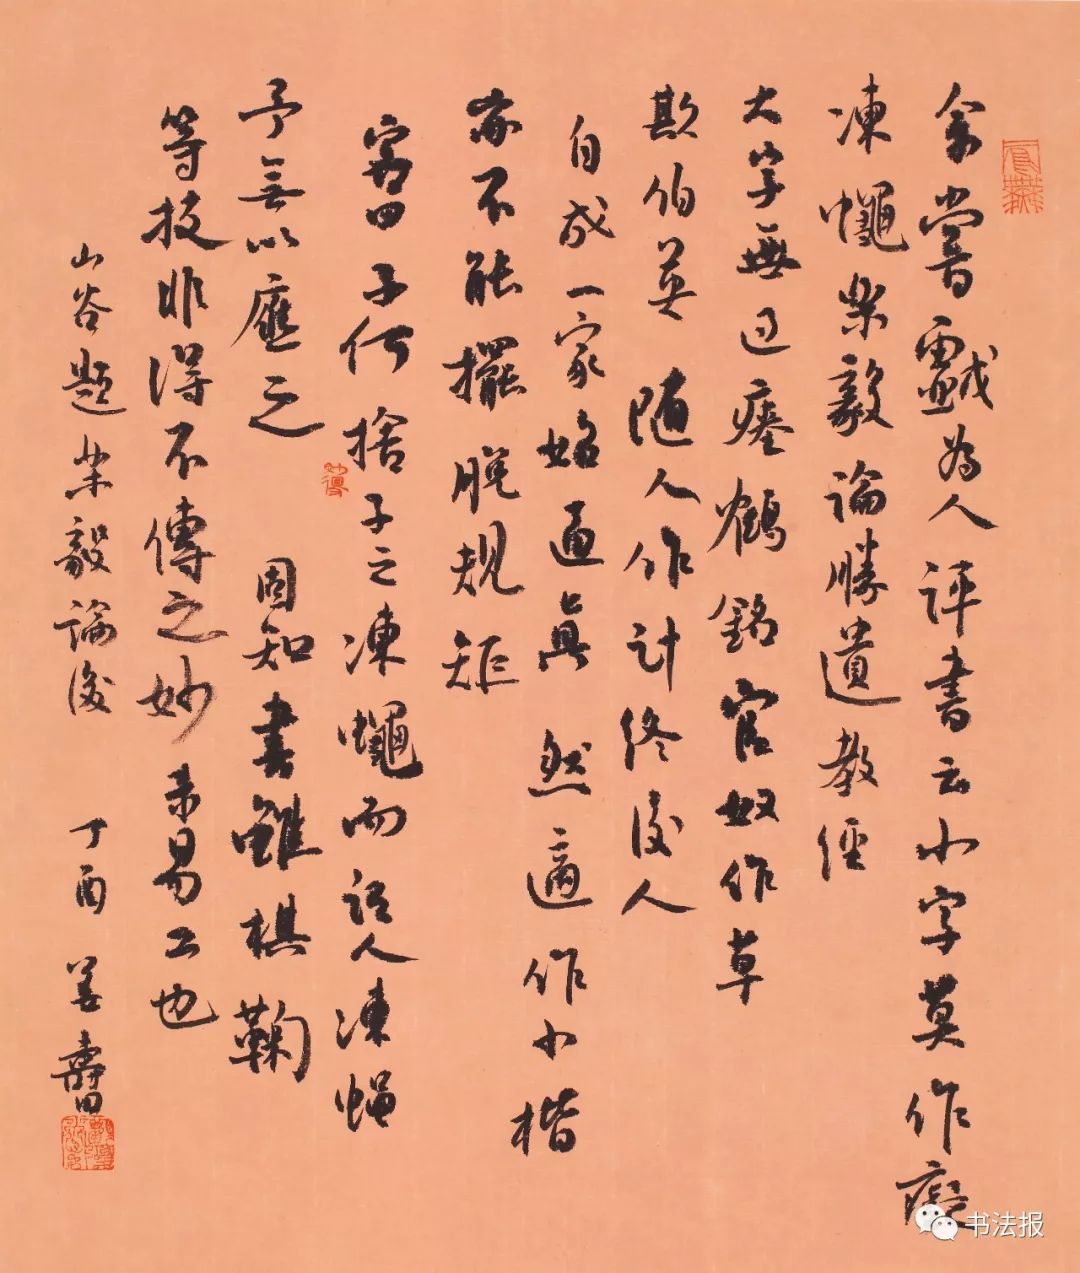 余嘗戲為人評書云小字莫作癡
凍蠅樂毅論勝遺教經
大字無過瘞鶴銘官奴作草
欺伯英隨人作計終後人
自成一家始逼真然適作小楷
亦不能擺脫規矩
客曰子何捨子之凍蠅而謂人凍蠅
予無以應之固知書雖棋鞠
等技非得不傳之妙未易工也
山谷題樂毅論後 丁酉 善壽
书法报